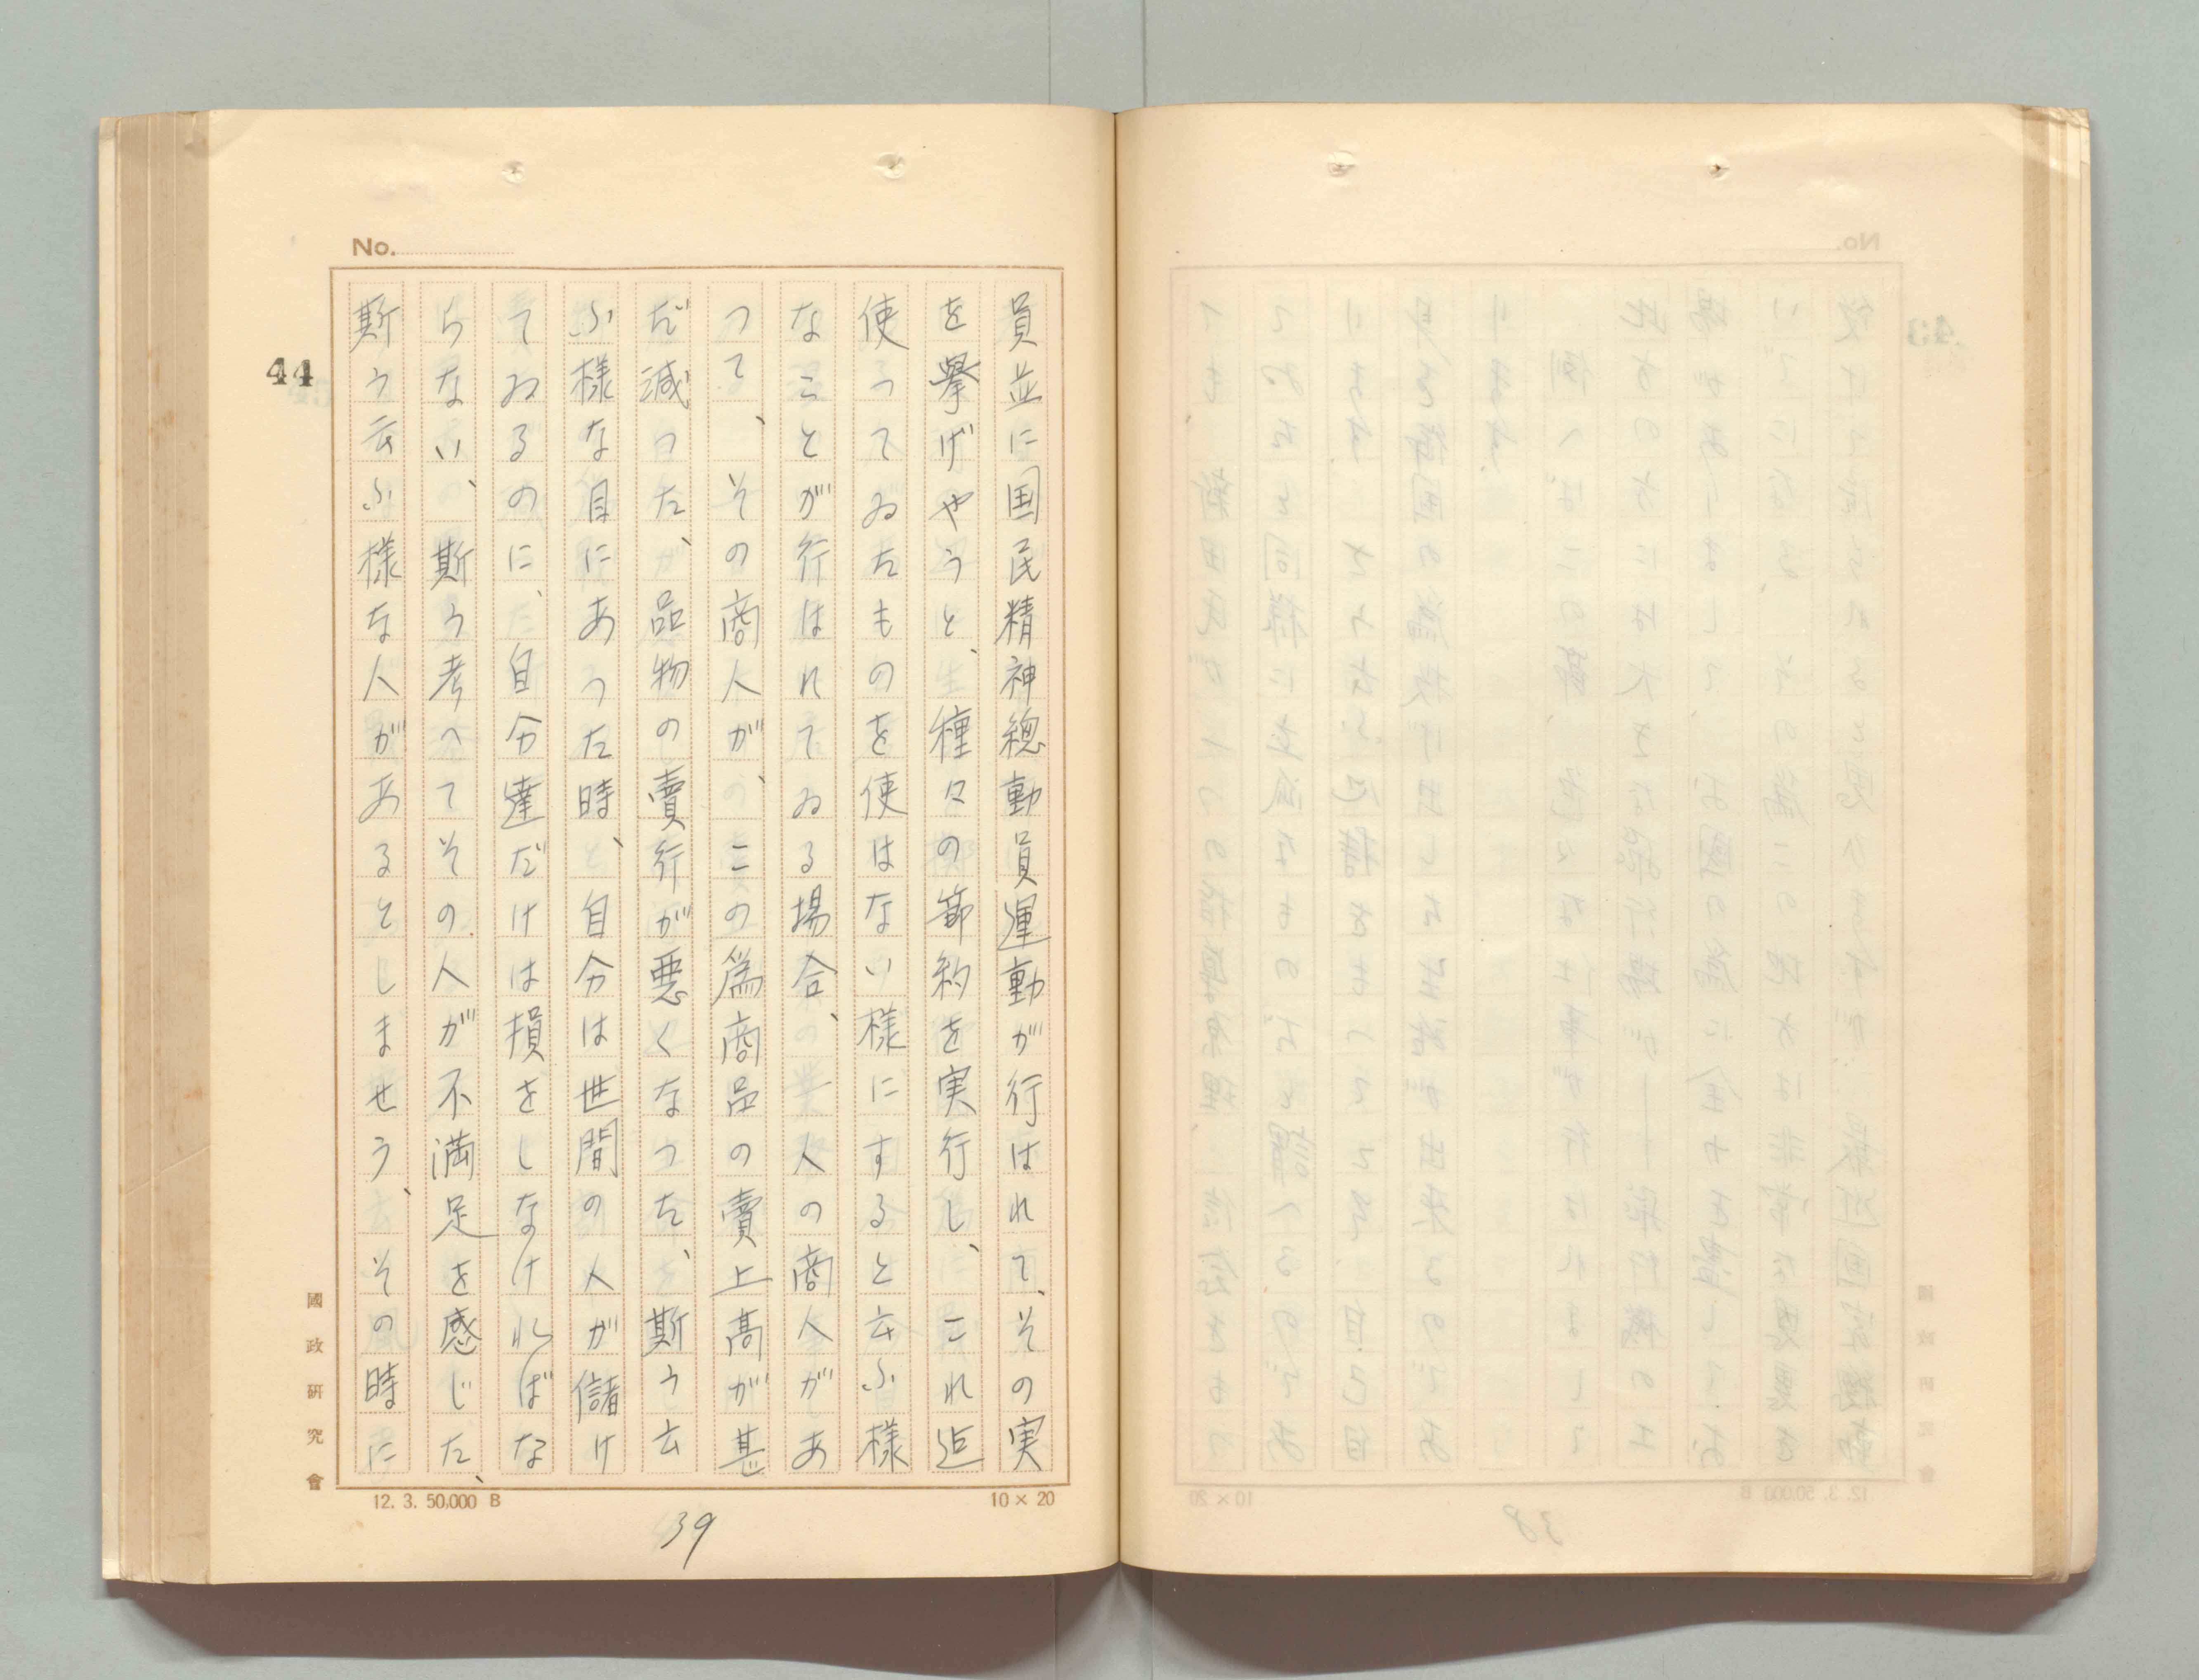 No.
44
員並に国民精神總動員運動が行はれて、その実
を擧げやうと、種々の節約を実行し、これ迄
使つてゐたものを使はない様にすると云ふ様
なことが行はれてゐる場合、人の商人があ
つて、その商人が、この爲商品の賣上高が甚
だ減つた、品物の賣行が悪くなつた、斯う云
ふ様な目にあつた時、自分は世間の人が儲け
てゐるのに、自分達だけは損をしなければな
らない、斯う考へてその人が不満足を感じた、
斯う云ふ様な人があるとしませう、その時に
國政研究會
12. 3. 50,000 B
10×20
39